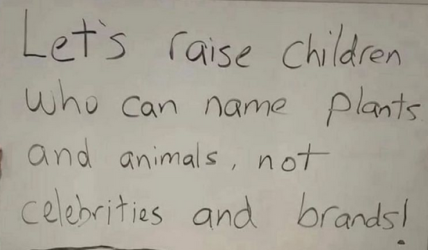 Let's raise children
who can name plants
and animals, not
celebrities and brands!